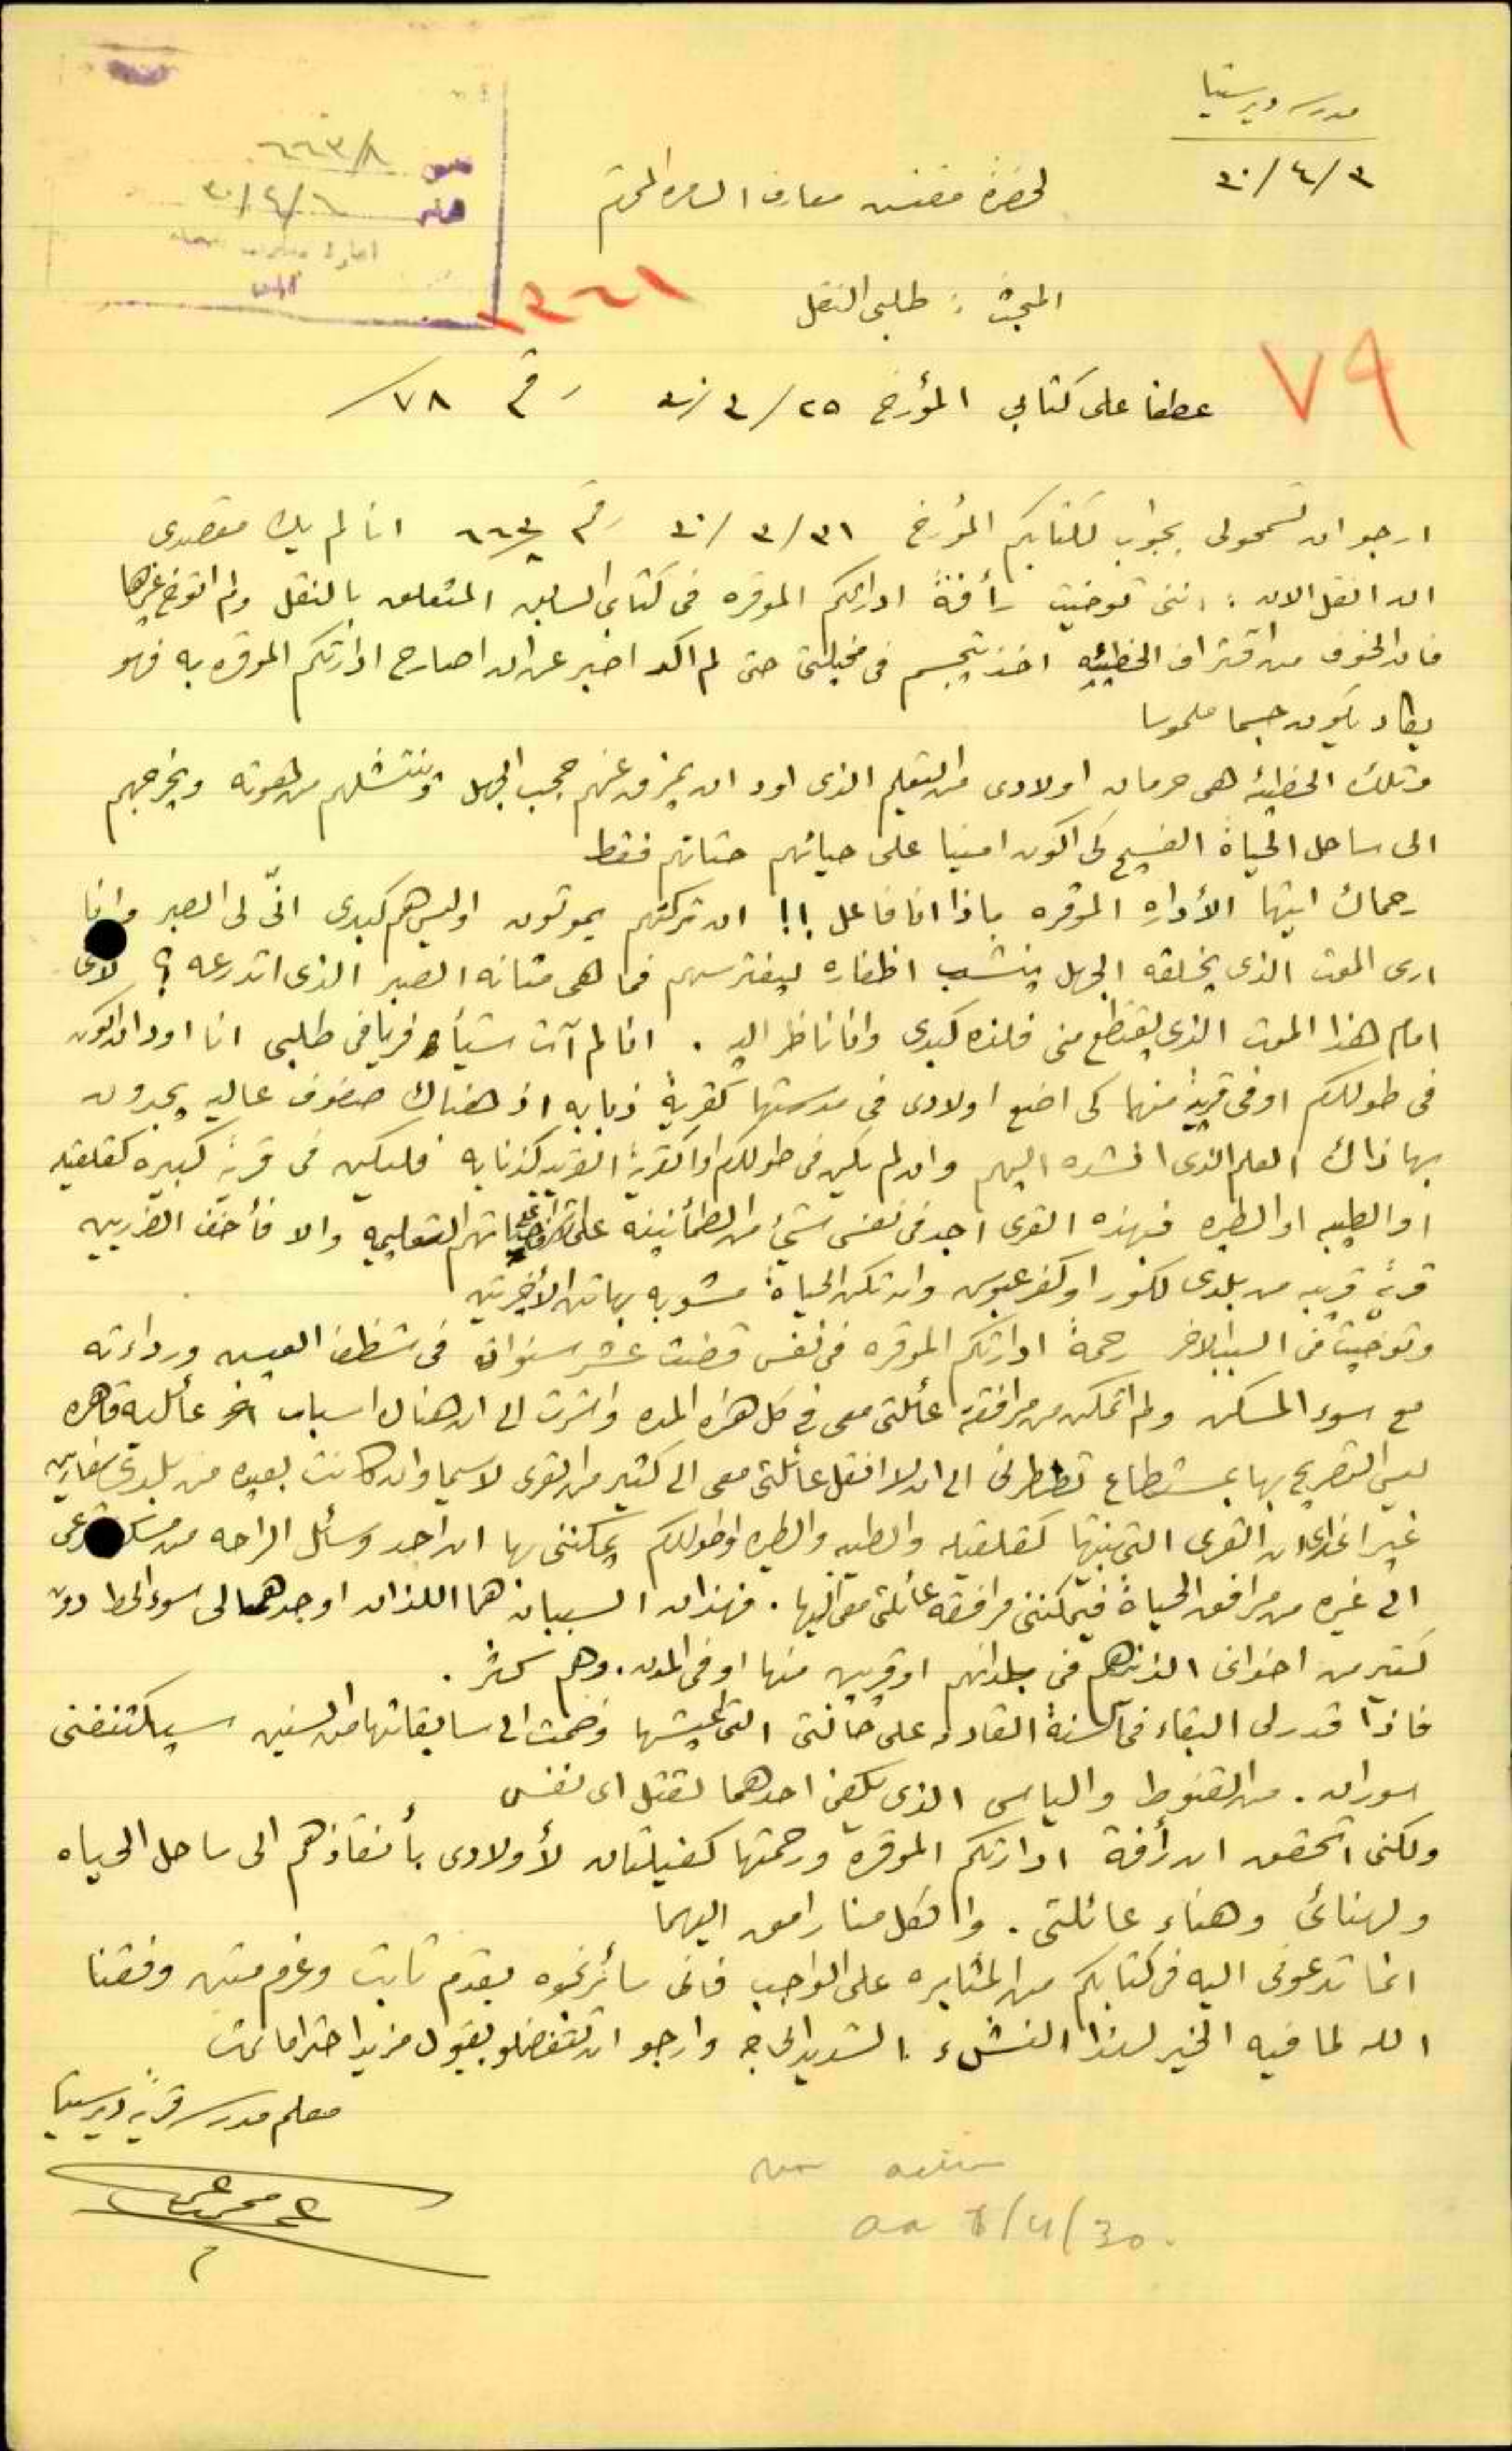 مدرسة ديرستيا
٣٠/٤/٣
لحضرة مفتش معارف السامره المحترم
٦٦٣/٨
٣٠/٤/٦
١٣٦١
المبحث : طلبي النقل
٧٩
عطفا على كتابي المؤرخ ٢٥/٣/٣٠ رقم ٧٨/
ارجو ان تسمحولي بجواب لكتابكم المؤرخ ٣١/٣/٣٠ رقم ٦٦٣/٨ انا لم يك مقصدي
ان انقل الان : انني توخيت رأفة ادارتكم الموقره في كتابي السابق المتعلق بالنقل ولم اتوخ غيرها
فان الخوف من اقتراف الخطيئه اخذ يتجسم في مخيلتي حتى لم اكد اصبر عن ان اصارح ادارتكم الموقره به فهو
يكاد يكون جسما ملموسا
وتلك الخطيئه هي حرمان اولادي من التعليم الذي اود ان يمزق عنهم حجب الجهل وينتشلهم من هوته ويخرجهم
الى ساحل الحياة الفسيح كي اكون امينا على حياتهم حياتهم فقط
رحماك ايتها الأداره الموقره ماذا انا فاعل !! ان تركتهم يموتون اوليس هم كبدي انّى لي الصبر وانا
ارى الموت الذي يخلقه الجهل ينشب اظفاره ليفترسهم فما هي متانه الصبر الذي اتدرعه ؟
امام هذا الموت الذي يقتطع مني فلذه كبدي وانا ناظر اليه . انا لم آت شيأ فريا في طلبي انا اود ان اكون
في طولكرم او في قرية منها كي اضع اولادي في مدرستها كقرية ذنابه اذ هناك صفوف عاليه يجدون
بها ذاك العلم الذي انشده اليهم وان لم يكن في طولكرم او القرية القريبه كذنابه فليكن في قرية كبيره كقلقيليه
او الطيبه او الطيره فهذه القرى اجد في نفسي شيئ من الطمأنينه على حياتهم التعليميه والا فأخف الضررين
قرية قريبه من بلدي لكور او كفر عبوس وان تكن الحياة مشوبه بهاتين الاخيرتين
وتوخيت في السبب الاخر رحمة ادارتكم الموقره في نفس قضت عشر سنوات في شظف العيش ورداءته
مع سوء المسكن ولم اتمكن من مرافقة عائلتي معي في كل هذه المده واشرت الى ان هناك اسباب اخر عائليه قاهره
ليس التصريح بها بمستطاع تظطرني الى ان لا انقل عائلتي معي الى كثير من القرى لاسيما وان كانت بعيده من بلدي سفارين
غير اني ارى ان القرى التي بينتها كقلقيليه والطيبه والطيره او طولكرم يمكنني بها ان اجد وسائل الراحه من مسكن
الى غيره من مرافق الحياة فيمكنني مرافقه عائلتي معي اليها . فهذان السببان هما اللذان اوجدهما لي سوء الحظ دون
كثير من اخواني الذين هم في بلدانهم او قريبين منها او في المدن . وهم كثر .
فاذا قدر لي البقاء في السنة القادمه على حالتي التي اعيشها وضمت الى سابقاتها من السنين سيكتنفني
سوران . من القنوط والياس الذي يكفي احدهما لقتل اي نفس
ولكني اتحقق ان رأفة ادارتكم الموقره ورحمتها كفيلتان لأولادي بأنقاذهم الى ساحل الحياه
ولهنائي وهناء عائلتي . والكل منا رامق اليهما
اما تدعوني اليه في كتابكم من المثابره على الواجب فاني سائر نحوه بقدم ثابت وعزم متين وفقنا
الله لما فيه الخير لهذا النشء الشديد الحاجه وارجو ان تتفضلو بقبول مزيد احتراماتي
معلم مدرسة قرية ديرستيا
no action
aa 8/4/30.